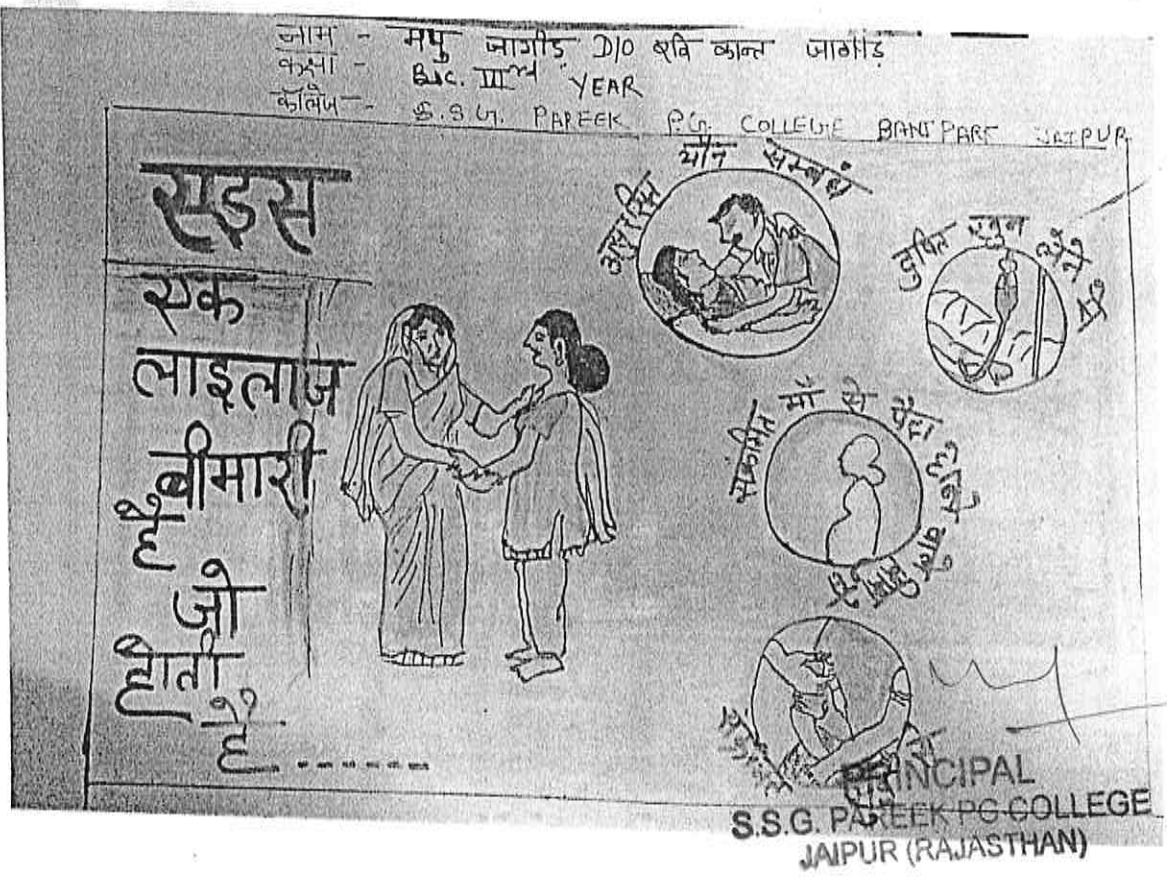 नाम - मधु जांगीड़ D/O रवि कान्त जांगीड़
कक्षा - B.Sc. IIIrd YEAR
कॉलेज - S.S.G. PAREEK P.G. COLLEGE BANI PARK JAIPUR
एड्स
एक
लाइलाज
बीमारी
है
जो
होती
है ------
असुरक्षित यौन सम्बंध
दुषित खुन लेने से
सक्रंमित माँ से पैदा होने वाले
PRINCIPAL
S.S.G. PAREEK PG COLLEGE
JAIPUR (RAJASTHAN)